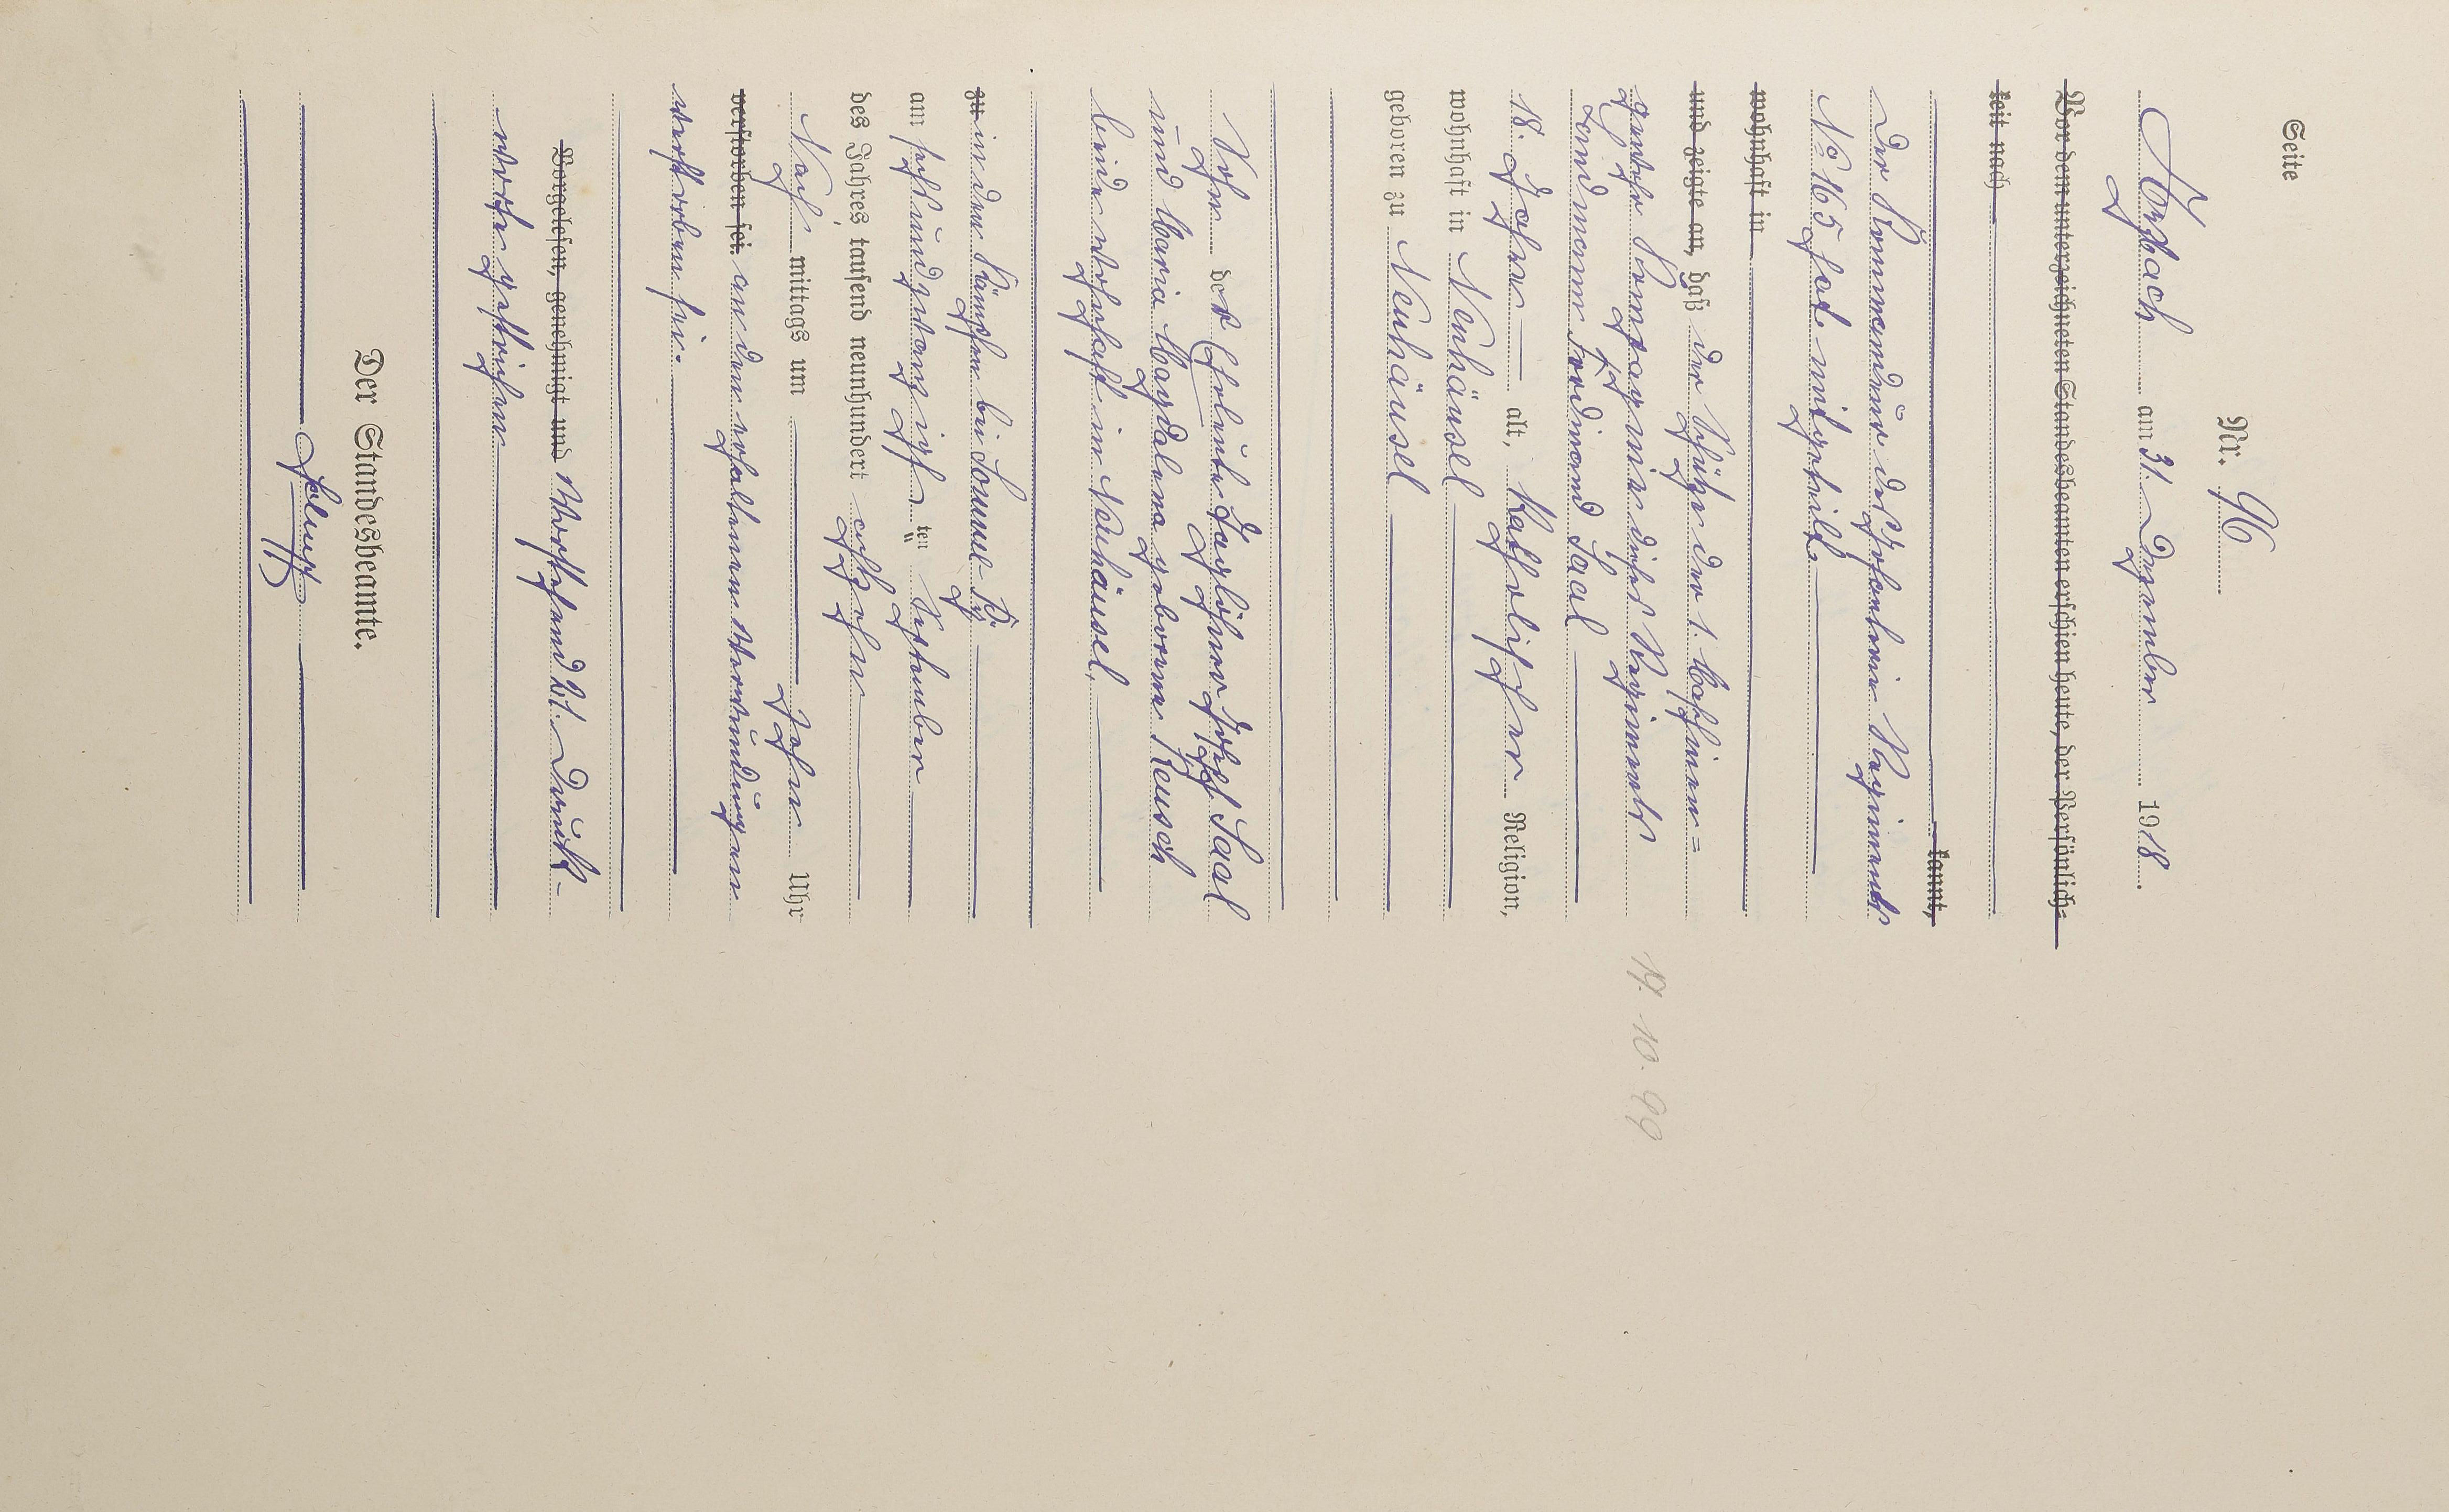 Seite
Nr. 96
Arzbach am 31. Dezember 1918.
Vor dem unterzeichneten Standesbeamten erschien heute, der Persönlich=
keit nach
kannt,
Der Kommandeur des Infanterie Regiments
No 165 hat mitgeteilt
wohnhaft in
und zeigte an, daß der Schütze der 1. Maschinen=
gewehr Kompagnie dieses Regiments
Landmann Ferdinand Saal
18. Jahre alt, Katholischer Religion,
wohnhaft in Neuhäusel
geboren zu Neuhäusel
Sohn der Eheleute Taglöhner Josef Saal
und Maria Magdalena geborene Reusch
beide wohnhaft in Neuhäusel,
zu in den Kämpfen bei Somme-Py
am sechsundzwanzigsten September
des Jahres tausend neunhundert achtzehn
Nach mittags um zehn Uhr
verstorben sei. an den erhaltenen Verwundungen
verstorben sei.
Vorgelesen, genehmigt und Vorstehend 21. Druck-
worte gestrichen
Der Standesbeamte.
17. 10. 99